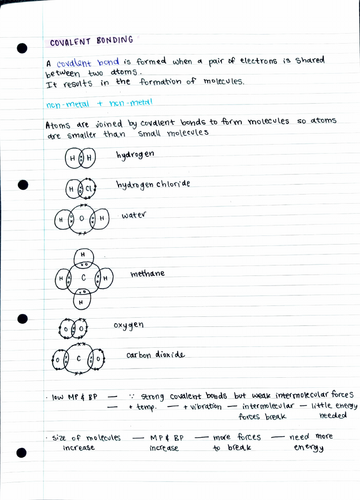 COVALENT BONDING
A covalent bond is formed when a pair of electrons is shared
between two atoms.
It results in the formation of molecules.
non-metal + non-metal
Atoms are joined by covalent bonds to form molecules so atoms
are smaller than small molecules
H H hydrogen
H Cl hydrogen chloride
H O H water
H
H C H methane
H
O O oxygen
O C O carbon dioxide
· low MP & BP — ∵ strong covalent bonds but weak intermolecular forces
— + temp. — + vibration — intermolecular — little energy
forces break needed
· size of molecules — MP & BP — more forces — need more
increase increase to break energy